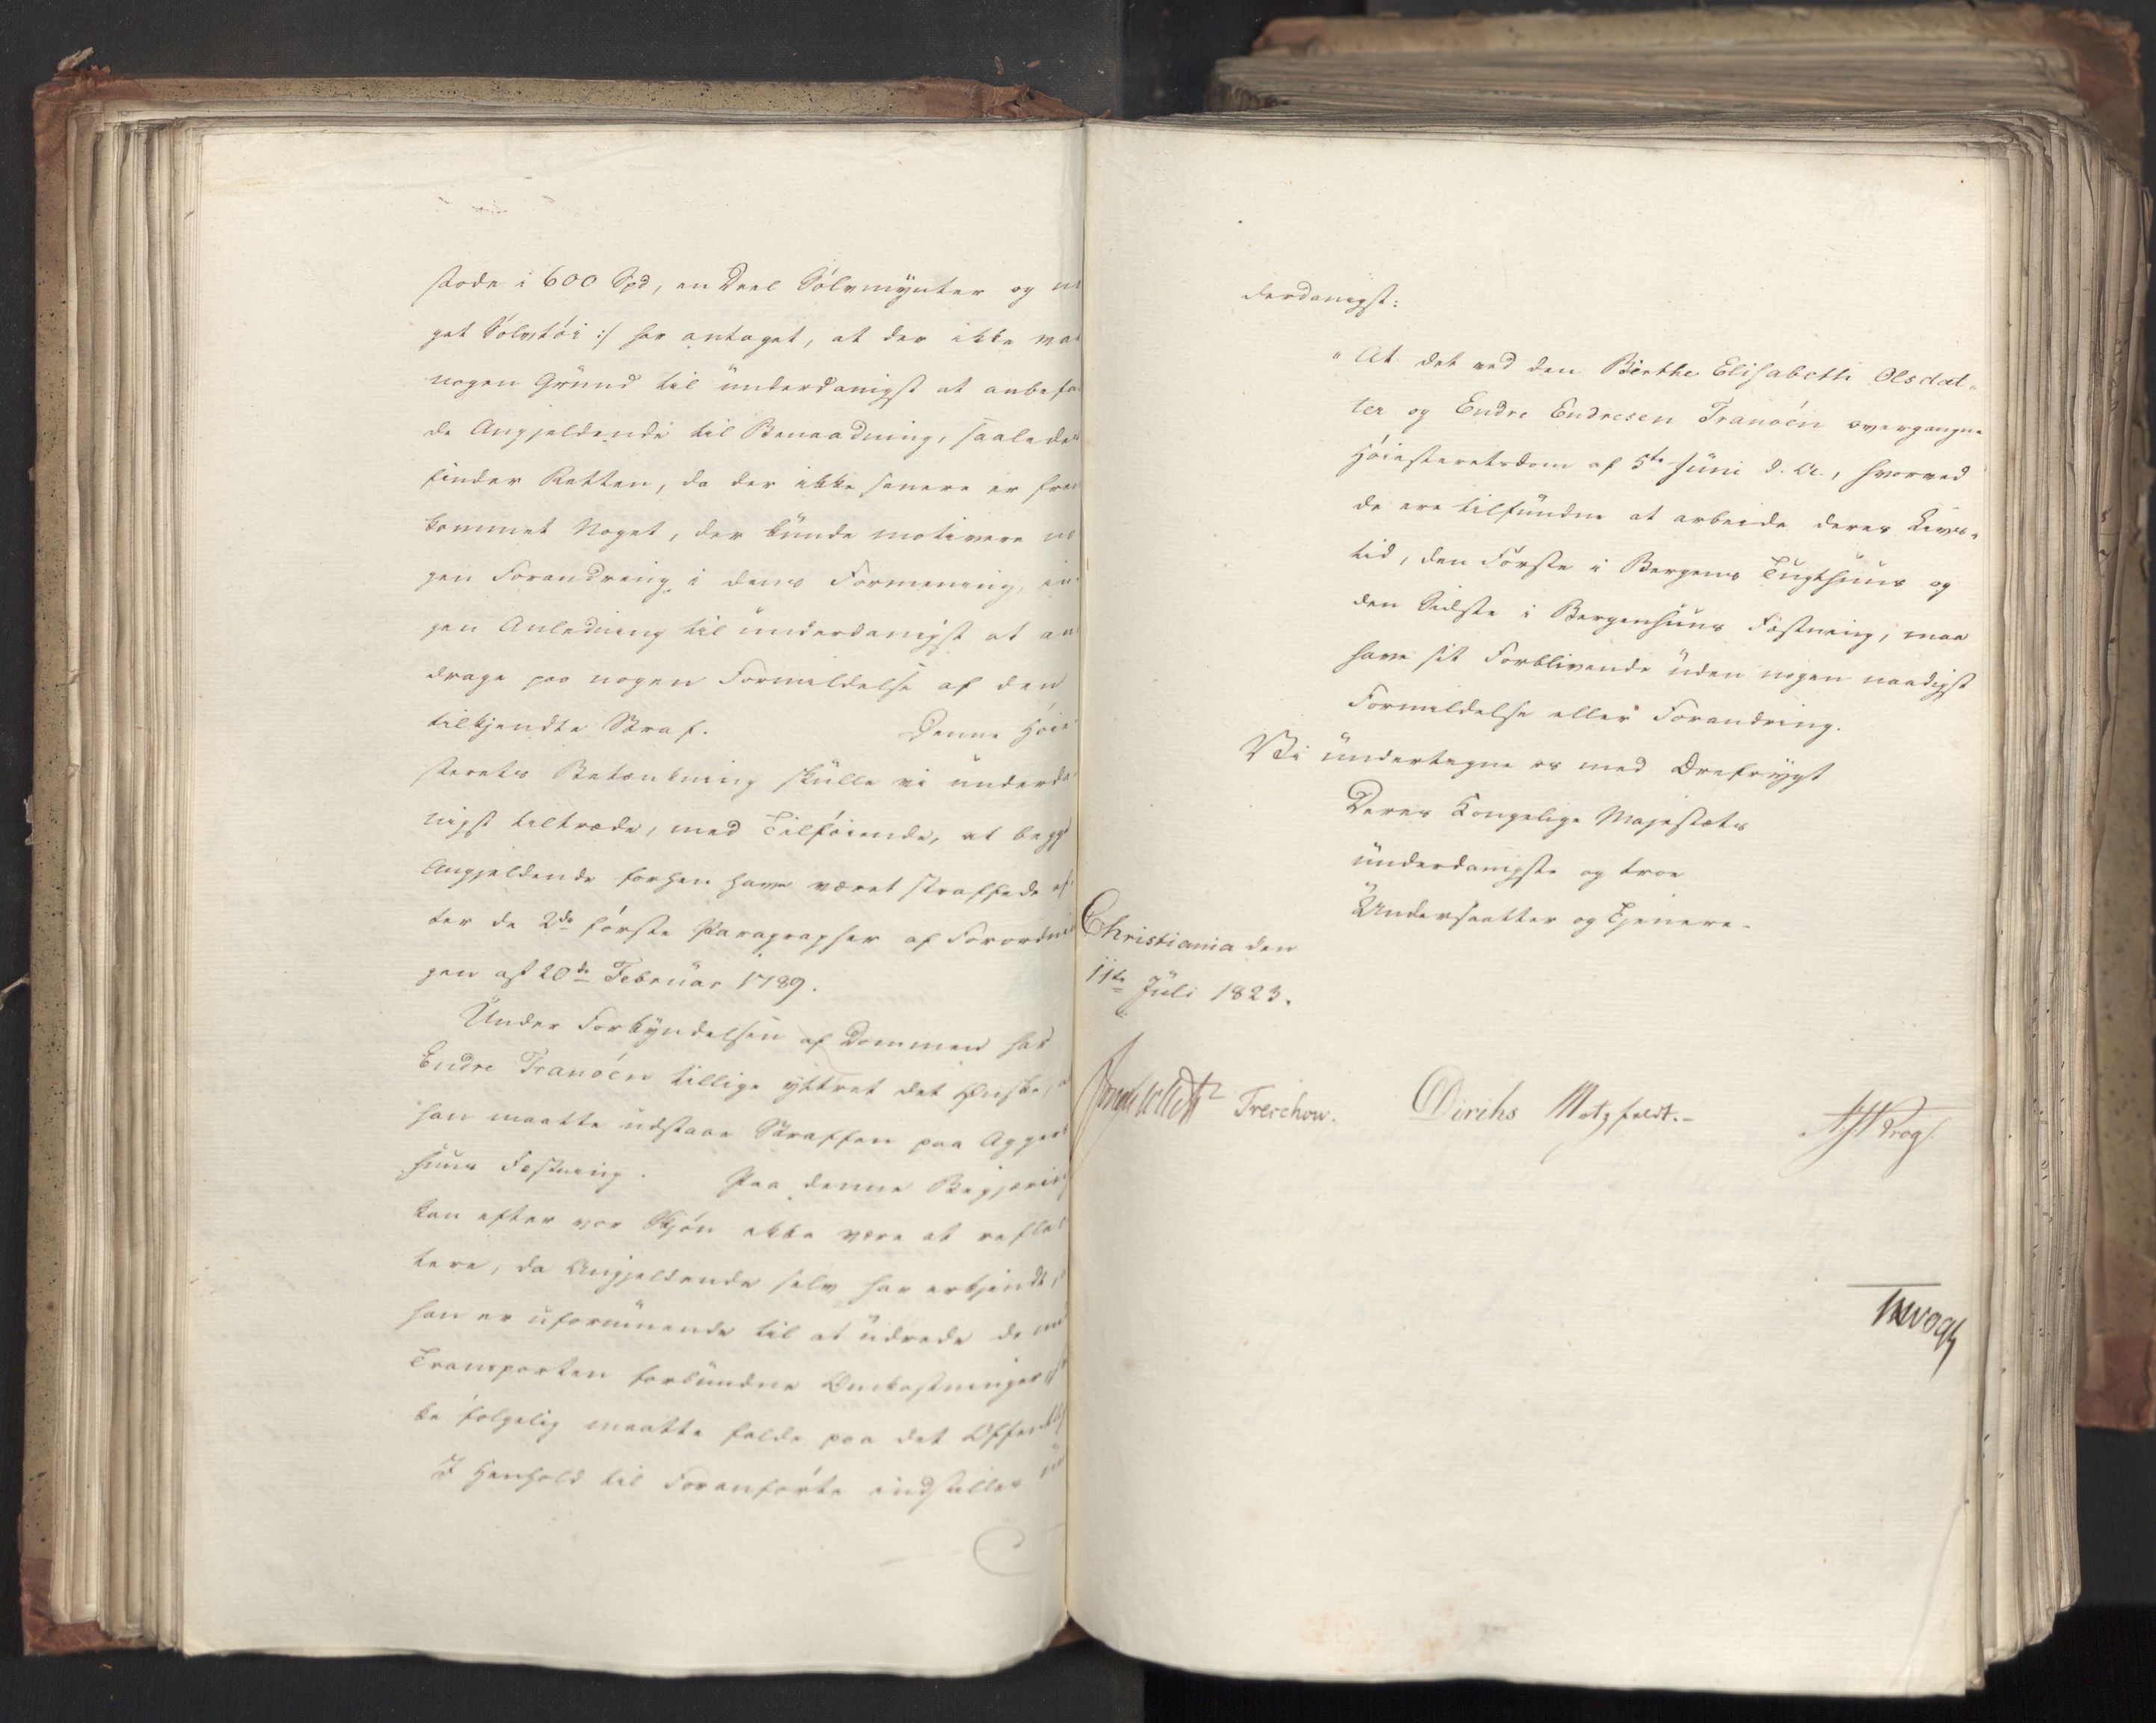 stode i 600 Spd, en Deel Sølvmynter og no
get Sølvtøi :/ har antaget, at der ikke var
nogen Grund til underdanigst at anbefa
de Angjeldende til Benaadning, saaledes
finder Retten, da der ikke senere er frem
kommet Noget, der kunde motivere no
gen Forandring i dens Formening, in
gen Anledning til underdanigst at an
drage paa nogen Formildelse af den
tilkjendte Straf. Denne Høie
sterets Betænkning skulle vi underda
nigst tiltræde, med Tilføiende, at begge
Angjeldende forhen have været straffede ef
ter de 2de første Paragrapher af Forordnin
gen af 20de Februar 1789.
Under Forkyndelsen af Dommen har
Endre Tranøen tillige yttret det Ønske, at
han maatte udstaae Straffen paa Aggers
huus Fæstning. Paa denne Begjæring
kan efter vor Skjøn ikke være at reflec
tere, da Angjeldende selv har erkjendt, at
han er uformuende til at udrede de med
Transporten forbundne Omkostninger,
ke følgelig maatte falde paa det Offentlige
I Henhold til Foranførte indstilles un
derdanigst:
"At det ved den Birthe Elisabeth Olsdat-
ter og Endre Endresen Tranöen overgangne
Høiesteretsdom af 5te Juni d. A., hvorved
de ere tilfundne at arbeide deres Livs-
tid, den Første i Bergens Tugthuus og
den Sidste i Bergenhuus Fæstning, maa
have sit Forblivende uden nogen naadigst
Formildelse eller Forandring.
Vi undertegne os med Ærefrygt
Deres Kongelige Majestæts
underdanigste og troe
Undersaatter og Tjenere.
Christiania den
11te Juli 1823.
Jonas Collett Treschow. Diriks Motzfeldt. JH Vogt
JH Vogt